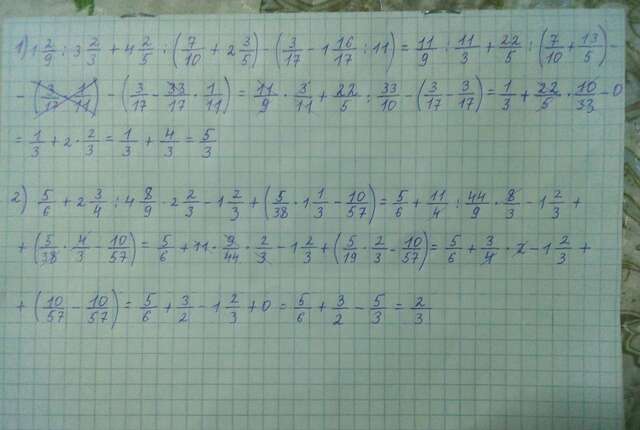 1) 1 2/9 : 3 2/3 + 4 2/5 : (7/10 + 2 3/5) - (3/17 - 1 16/17 : 11) = 11/9 : 11/3 + 22/5 : (7/10 + 13/5) -
- (3/17 - 33/17 · 1/11) = 11/9 · 3/11 + 22/5 : 33/10 - (3/17 - 3/17) = 1/3 + 22/5 · 10/33 - 0
= 1/3 + 2 · 2/3 = 1/3 + 4/3 = 5/3
2) 5/6 + 2 3/4 : 4 8/9 · 2 2/3 - 1 2/3 + (5/38 · 1 1/3 - 10/57) = 5/6 + 11/4 : 44/9 · 8/3 - 1 2/3 +
+ (5/38 · 4/3 - 10/57) = 5/6 + 11 · 9/44 · 2/3 - 1 2/3 + (5/19 · 2/3 - 10/57) = 5/6 + 3/4 · 2 - 1 2/3 +
+ (10/57 - 10/57) = 5/6 + 3/2 - 1 2/3 + 0 = 5/6 + 3/2 - 5/3 = 2/3